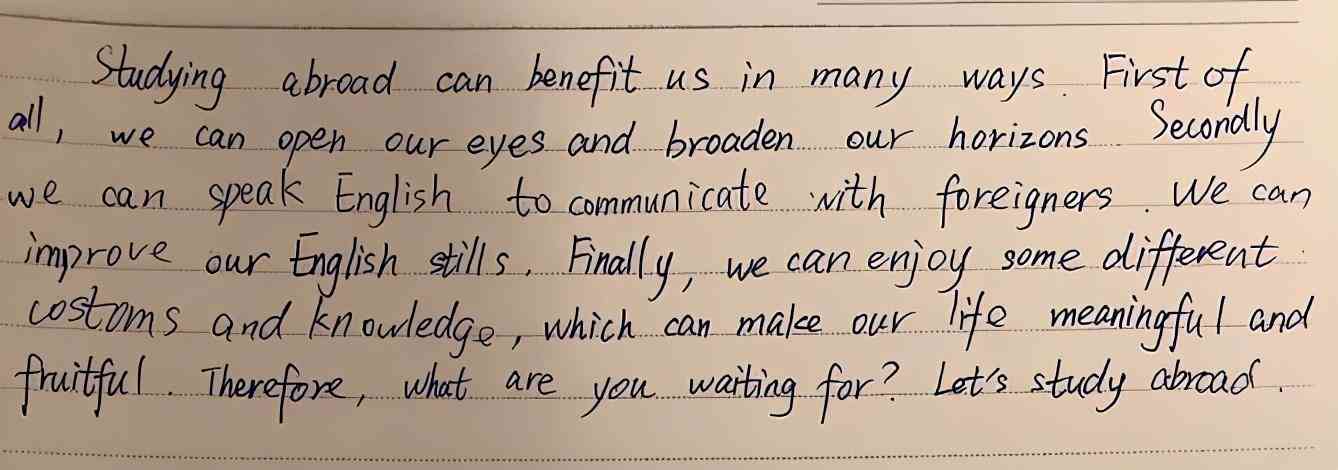 Studying abroad can benefit us in many ways. First of
all, we can open our eyes and broaden our horizons Secondly
we can speak English to communicate with foreigners. We can
improve our English stills. Finally, we can enjoy some different
costoms and knowledge, which can make our life meaningful and
fruitful. Therefore, what are you waiting for? Let's study abroad.